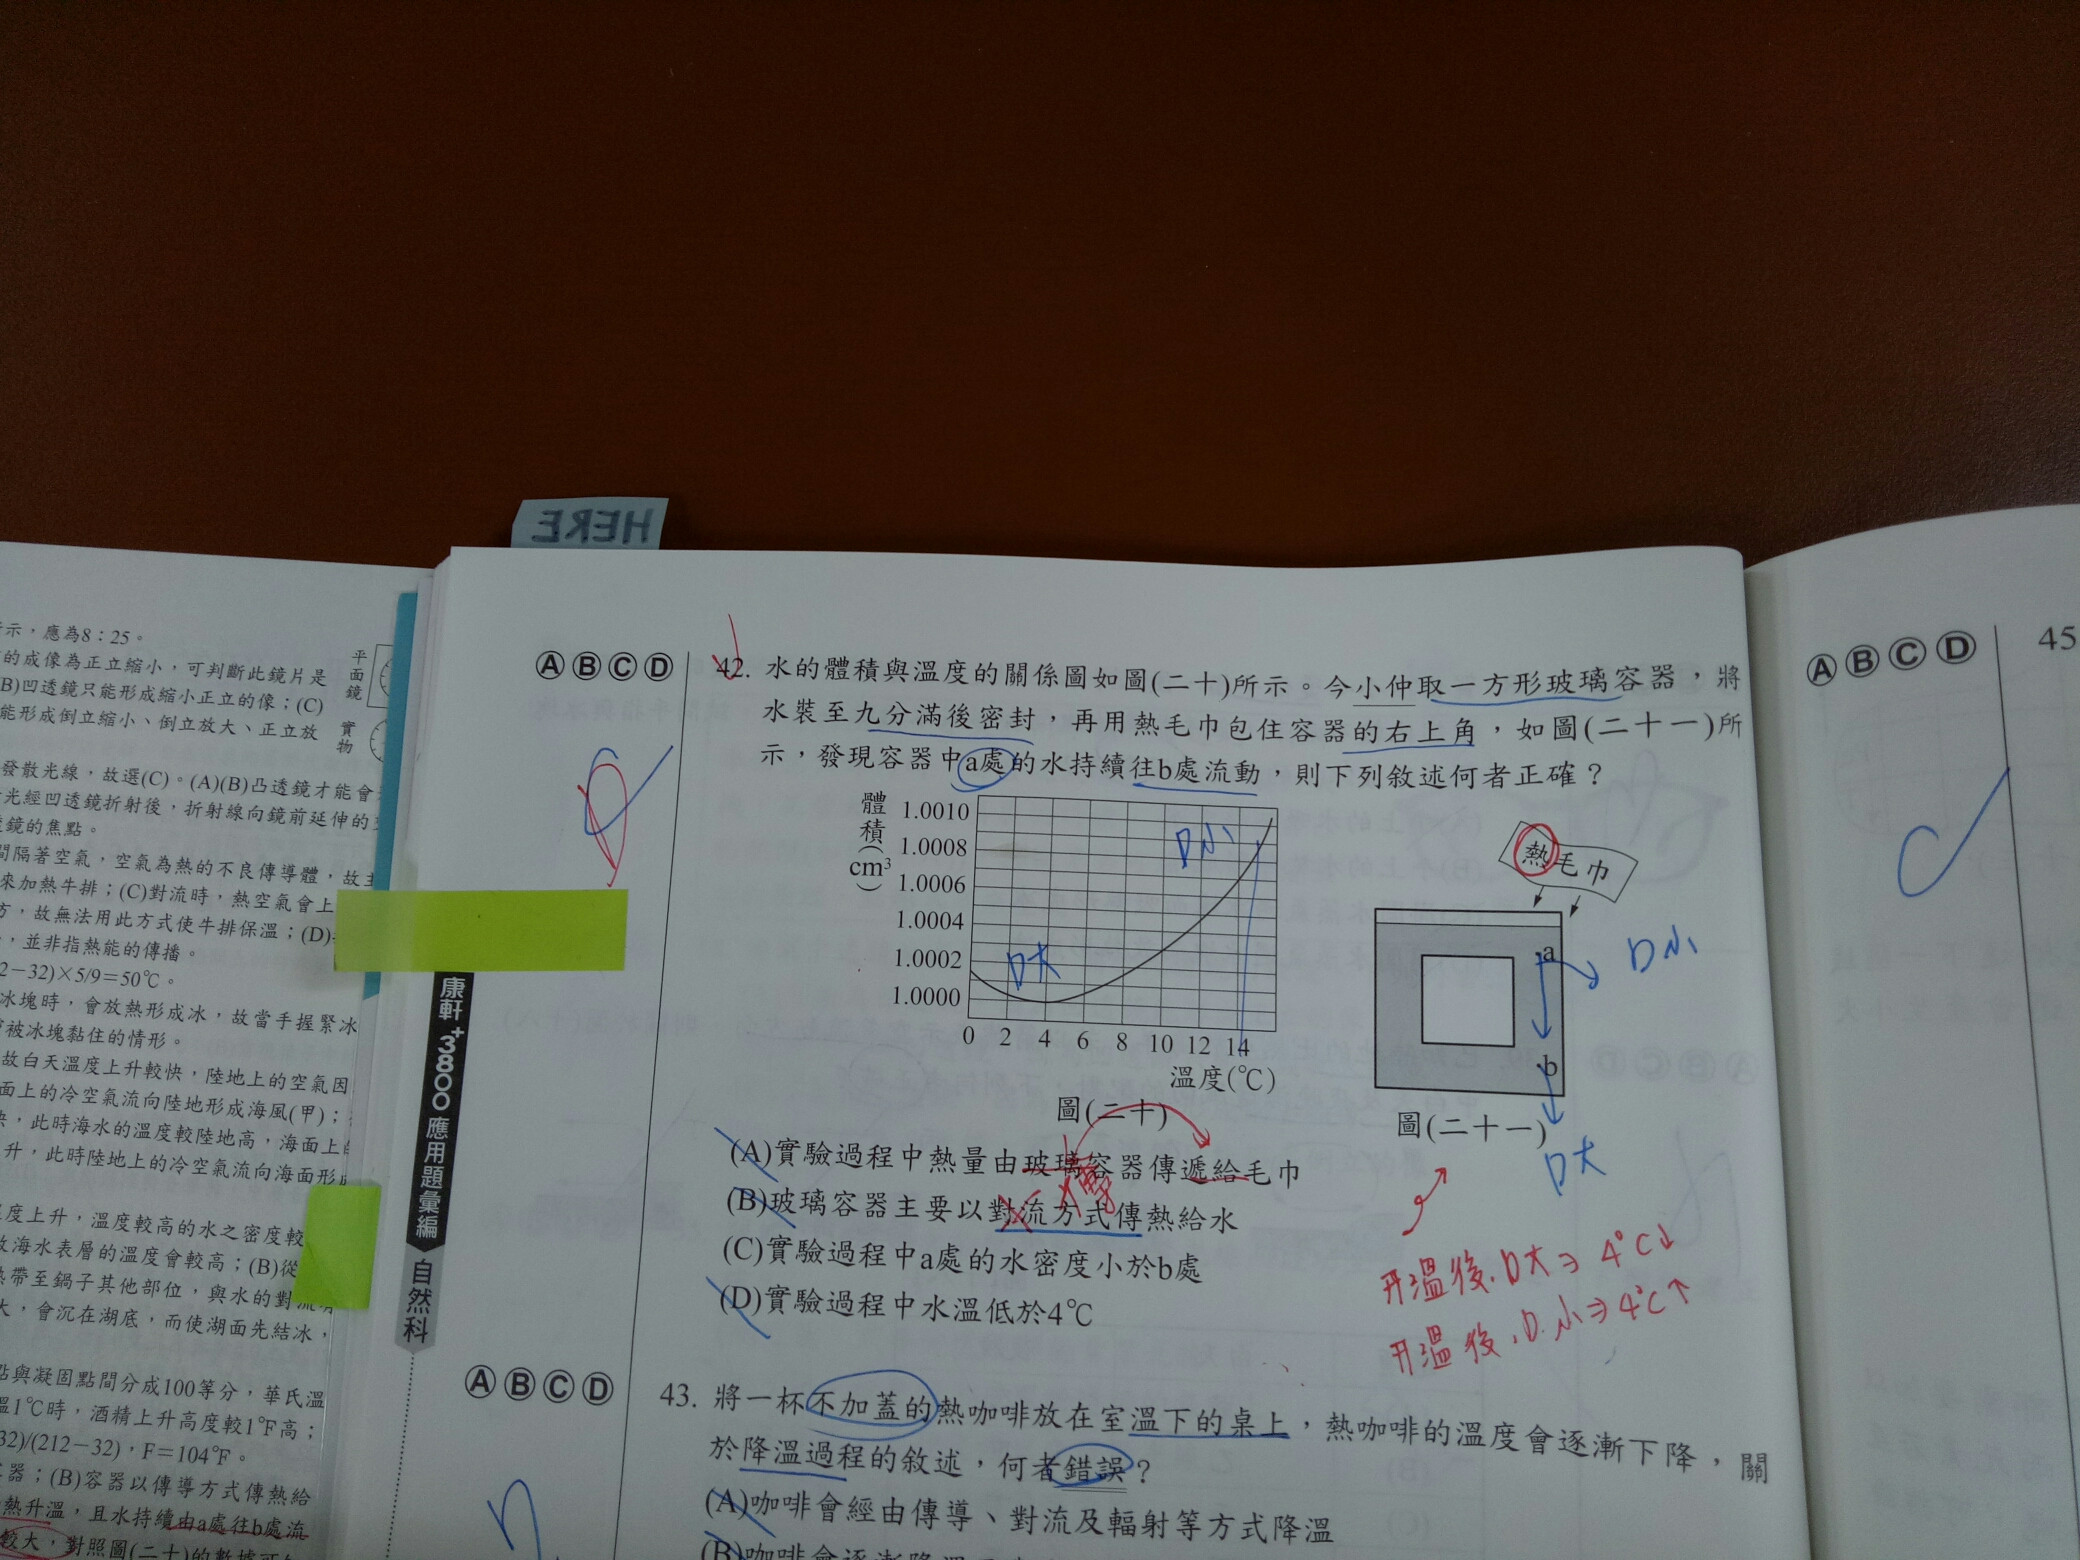 HERE
示，應為8：25。
的成像為正立縮小，可判斷此鏡片是
(B)凹透鏡只能形成縮小正立的像；(C)
能形成倒立縮小、倒立放大、正立放
平面鏡
實物
發散光線，故選(C)。(A)(B)凸透鏡才能會
光經凹透鏡折射後，折射線向鏡前延伸的
鏡的焦點。
間隔著空氣，空氣為熱的不良傳導體，故
來加熱牛排；(C)對流時，熱空氣會上
方，故無法用此方式使牛排保溫；(D)
，並非指熱能的傳播。
2－32)×5/9＝50℃。
冰塊時，會放熱形成冰，故當手握緊冰
被冰塊黏住的情形。
故白天溫度上升較快，陸地上的空氣因
面上的冷空氣流向陸地形成海風(甲)；
快，此時海水的溫度較陸地高，海面上
升，此時陸地上的冷空氣流向海面形
溫度上升，溫度較高的水之密度較
故海水表層的溫度會較高；(B)從
熱帶至鍋子其他部位，與水的對流
大，會沉在湖底，而使湖面先結冰，
點與凝固點間分成100等分，華氏溫
溫1℃時，酒精上升高度較1℉高；
32)/(212－32)，F＝104℉。
器；(B)容器以傳導方式傳熱給
熱升溫，且水持續由a處往b處流
較大，對照圖(二十)的數據可
康軒
+3800
應用題彙編
自然科
Ⓐ Ⓑ Ⓒ Ⓓ
42. 水的體積與溫度的關係圖如圖(二十)所示。今小仲取一方形玻璃容器，將
水裝至九分滿後密封，再用熱毛巾包住容器的右上角，如圖(二十一)所
示，發現容器中a處的水持續往b處流動，則下列敘述何者正確？
體積(cm³)
1.0010
1.0008
1.0006
1.0004
1.0002
1.0000
0 2 4 6 8 10 12 14
溫度(℃)
D小
D大
圖(二十)
熱毛巾
a
D小
b
D大
圖(二十一)
(A)實驗過程中熱量由玻璃容器傳遞給毛巾
(B)玻璃容器主要以對流方式傳熱給水
(C)實驗過程中a處的水密度小於b處
(D)實驗過程中水溫低於4℃
升溫後,D大⇒4℃↓
升溫後,D小⇒4℃↑
Ⓐ Ⓑ Ⓒ Ⓓ
43. 將一杯不加蓋的熱咖啡放在室溫下的桌上，熱咖啡的溫度會逐漸下降，關
於降溫過程的敘述，何者錯誤？
(A)咖啡會經由傳導、對流及輻射等方式降溫
Ⓐ Ⓑ Ⓒ Ⓓ
45